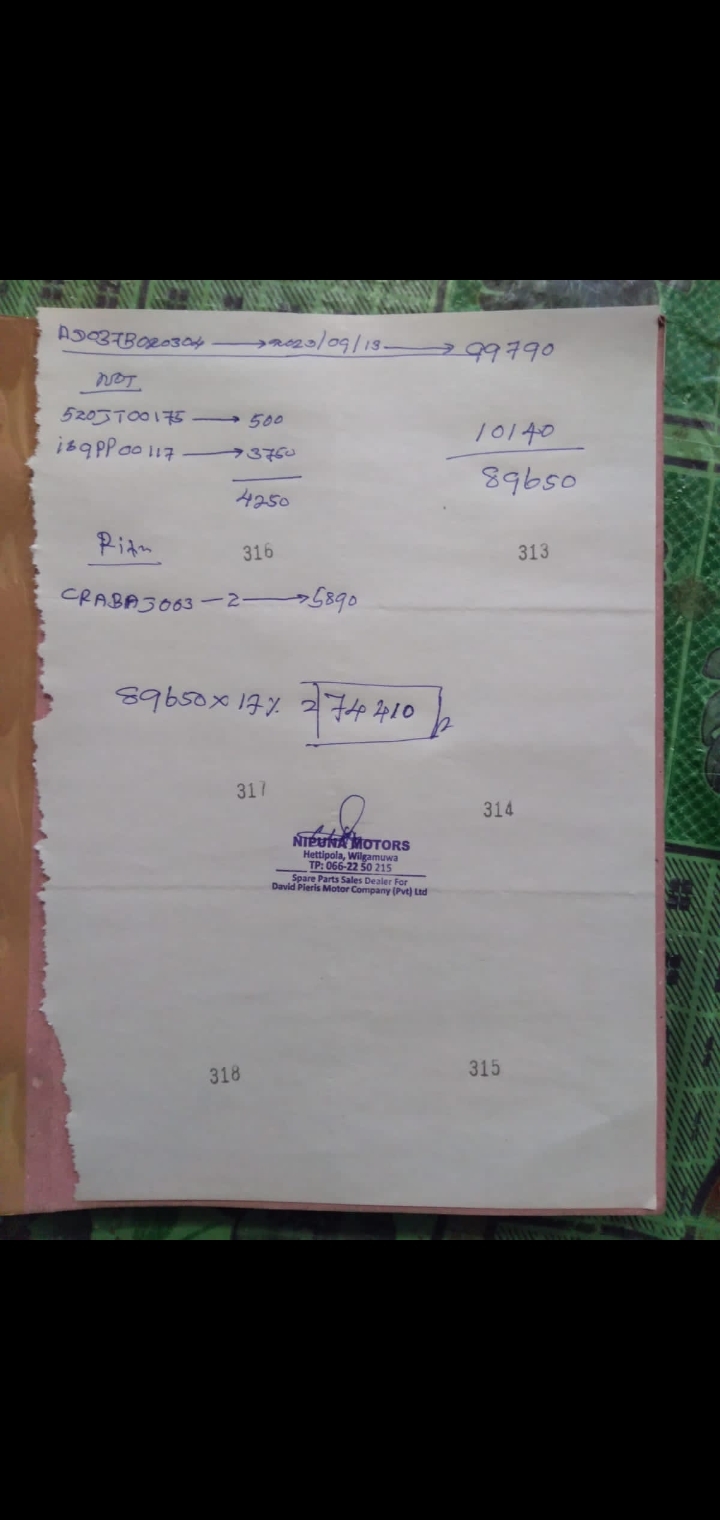 AD037B020304 → 2023/09/13 → 99790
NOT
520JT00175 → 500
10140
is9PP00117 → 3750
89650
4250
316
313
CRABAJ003 - 2 → 5890
89650 x 17% = 74410
317
314
NIPUNA MOTORS
Hettipola, Wilgamuwa
TP: 066-22 50 215
Spare Parts Sales Dealer For
David Pieris Motor Company (Pvt) Ltd
318
315